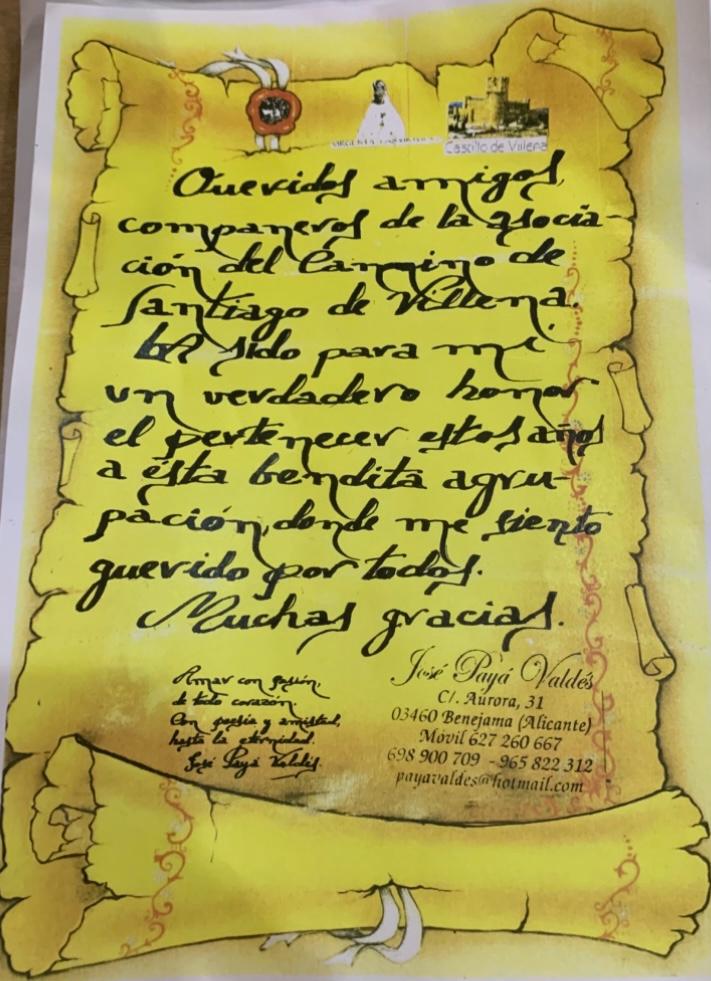 Castillo de Villena
Queridos amigos,
compañeros de la asocia-
ción del Camino de
Santiago de Villena.
ha sido para mí
un verdadero honor
el pertenecer estos años
a ésta bendita agru-
pación, donde me siento
querido por todos.
Muchas gracias.
Amar con pasión,
de todo corazón.
Con poesía y amistad,
hasta la eternidad.
José Payá Valdés.
José Payá Valdés
C/. Aurora, 31
03460 Benejama (Alicante)
Móvil 627 260 667
698 900 709 - 965 822 312
payavaldes@hotmail.com